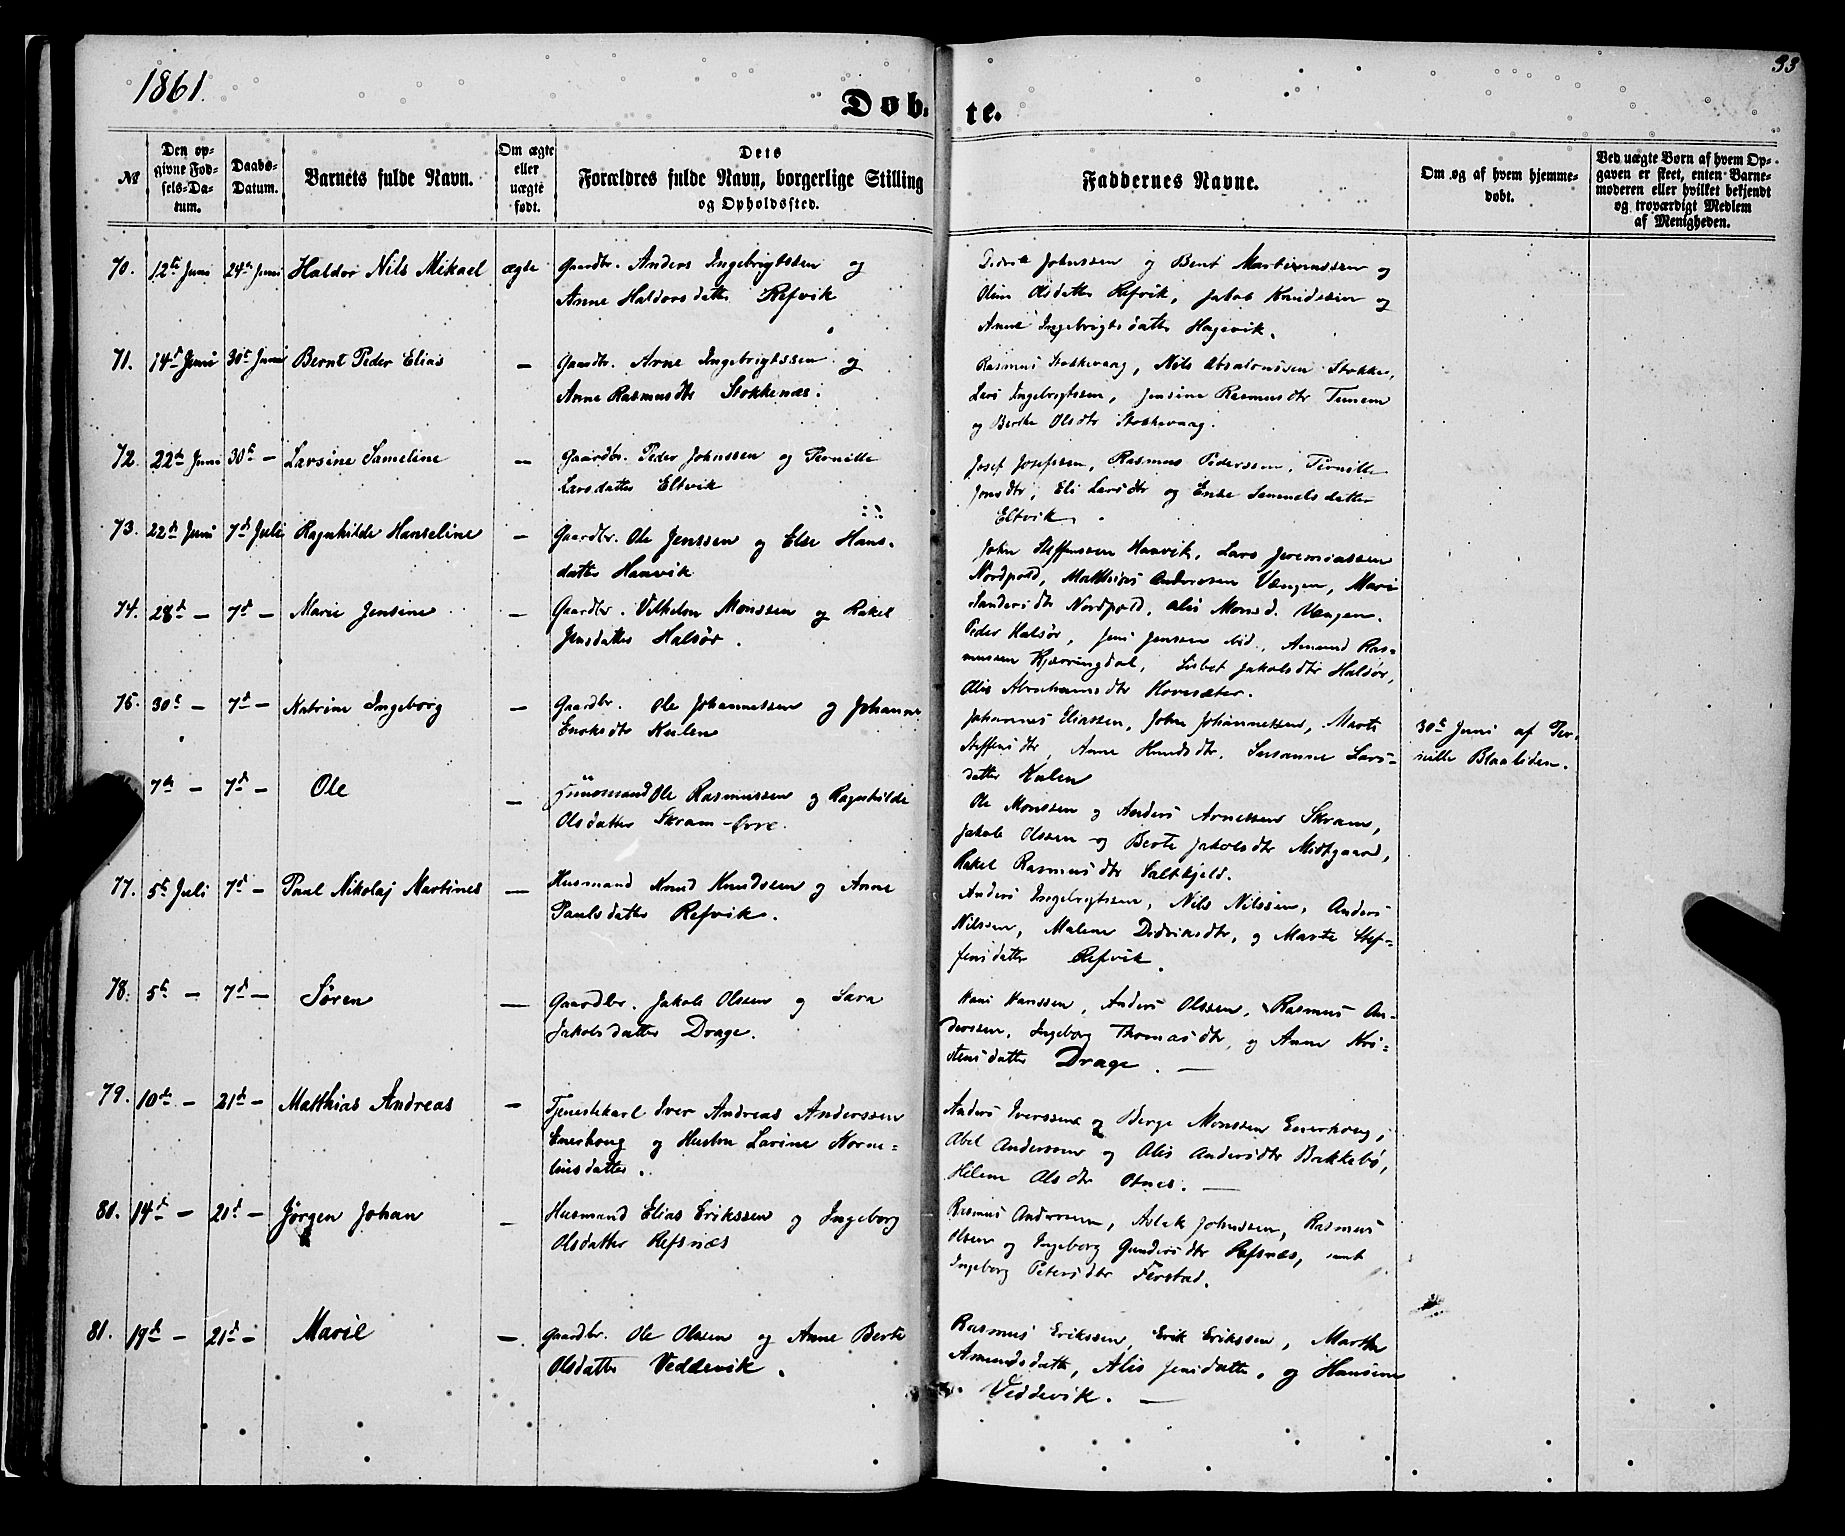 1861.
33
Døb-te.
№
Den op-
givne Fød-
sels-Da-
tum.
Daabs-
Datum.
Barnets fulde Navn.
Om ægte
eller
uægte
født.
Dets
Forældres fulde Navn, borgerlige Stilling
og Opholdssted.
Faddernes Navne.
Om og af hvem hjemme-
døbt.
Ved uægte Børn af hvem Op-
gaven er skeet, enten Barne-
moderen eller hvilket bekjendt
og troværdigt Medlem
af Menigheden.
70. 12te Juni 24de Juni Haldor Nils Mikael ægte Gaardbr. Anders Ingebrigtssen og
Anne Haldorsdatter Refvik
Johnssen og Bent Martinussen og
Oline Olsdatter Refvik, Jakob Knudssen og
Anne Ingebrigtsdatter Hagevik.
71. 14de Juni 30te Juni Bernt Peder Elias — Gaardbr. Arne Ingebrigtssen og
Anne Rasmusdtr Stokkenæs.
Rasmus Stokkevaag, Nils Absalonsen Stokke,
Lars Ingebrigtssen, Jensine Rasmusdtr
og Berthe Olsdtr Stokkevaag.
72. 22de Juni 30te — Larsine Sameline — Gaardbr. Peder Johnssen og Pernille
Larsdatter Eltvik
Josef Josefssen, Rasmus Pederssen, Pernille
Jonsdtr, Eli Larsdtr og Samuelsdatter
Eltvik.
73. 22de Juni 7de Juli Ragnhilde Hanseline — Gaardbr. Ole Jenssen og Else Hans-
datter Haavik
John Steffenssen Haavik, Lars Jeremiassen
Nordpold, Matthias Andreasen Vængen, Mari
Sandersdtr Nordpold, Alis Monsd. Vængen.
74. 28de — 7de — Marie Jensine — Gaardbr. Vilhelm Monssen og Rakel
Jensdatter Halsør.
Peder Halsør, Jens Jenssen ibid., Amund Ras-
mussen Kjærringdal, Lisbet Jakobsdtr Halsør,
Alis Abrahamsdtr Hovesæter.
75. 30te — 7de — Katrine Ingeborg — Gaardbr. Ole Johannessen og Johanne
Enoksdtr Kulen
Johannes Eliassen, John Johannessen, Marte
Steffensdtr, Anne Knudsdtr, Susanne Lars-
datter Kulen
30te Juni af Per-
nille Blaaliden.
7de — 7de — Ole — Huusmand Ole Rasmussen og Ragnhilde
Olsdatter Skram
Ole Monssen og Anders Arnessen Skram,
Jakob Olssen og Berte Jakobsdtr Midtgaard,
Rakel Rasmusdtr Saltkjeld.
77. 5te Juli 7de — Paul Nikolaj Martines — Husmand Knud Knudssen og Anne
Paulsdatter Refvik.
Anders Ingebrigtssen, Nils Nilssen, Anders
Nilssen, Malene Didriksdtr, og Marte Stef-
fensdatter Refvik.
78. 5te — 7de — Søren — Gaardbr. Jakob Olssen og Sara
Jakobsdatter Drage.
Hans Hanssen, Anders Olssen, Rasmus An-
derssen, Ingeborg Thomasdtr, og Anne Kri-
stensdatter Drage. —
79. 10de — 21de — Matthias Andreas — Tjenestekarl Iver Andreas Anderssen
Enerhoug og Hustru Larine Korne-
liusdatter.
Anders Iverssen og Berge Monssen Enerhoug,
Abel Anderssen og Alis Andersdtr Bakkebø,
Helene Olsdtr Osnes. —
80. 14de — 21de — Jørgen Johan — Husmand Elias Erikssen og Ingeborg
Olsdatter Refsnæs
Rasmus Anderssen, Aslak Johnssen, Rasmus
Olsen og Ingeborg Gundersdtr Refsnæs, samt
Ingeborg Petersdtr Ferstad.
81. 19de — 21de — Marie — Gaardbr. Ole Olssen og Anne Berte
Olsdatter Veddevik.
Rasmus Erikssen, Erik Erikssen, Marthe
Amundsdatter, Alis Jensdatter, og Hansine
Veddevik. —